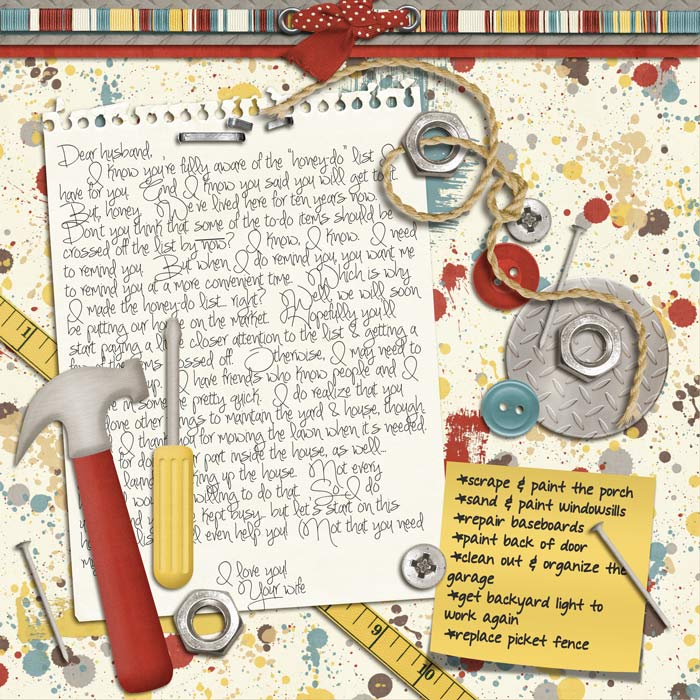 Dear husband,
I know you're fully aware of the "honey-do" list I
have for you. And I know you said you will get to it.
But, honey... We've lived here for ten years now.
Don't you think that some of the to-do items should be
crossed off the list by now? I know, I know. I need
to remind you. But when I do remind you, you want me
to remind you at a more convenient time. Which is why
I made the honey-do list, right? Well, we will soon
be putting our home on the market. Hopefully you'll
start paying a little closer attention to the list & getting a
of the items crossed off. Otherwise, I may need to
up. I have friends who know people and I
me in someone pretty quick. I do realize that you
done other things to maintain the yard & house, though.
I thank you for mowing the lawn when it's needed.
for do your part inside the house, as well...
laun up the house. Not every
wou willing to do that. So I do
and kept busy... but let's start on this
h list I'll even help you! Not that you need
my
I love you!
Your wife
*scrape & paint the porch
*sand & paint windowsills
*repair baseboards
*paint back of door
*clean out & organize the
garage
*get backyard light to
work again
*replace picket fence
1
9
10